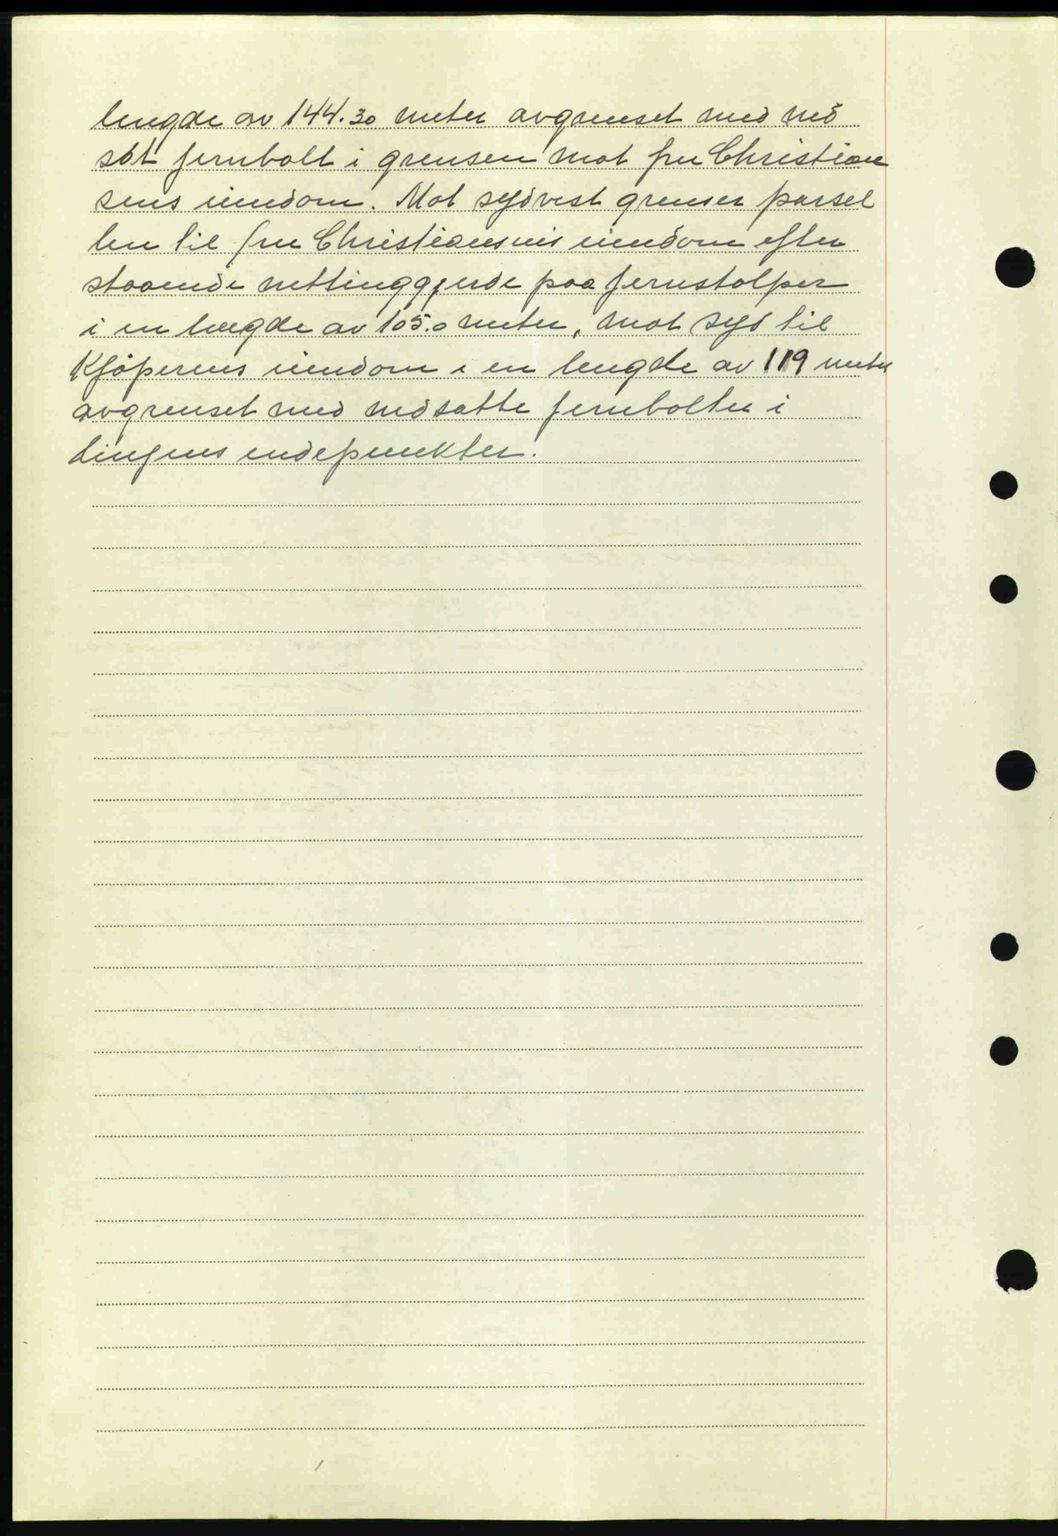 lengde av 144.30 meter avgrenset med ned
sat jernbolt i grensen mot fru Christian
sens eiendom. Mot sydvest grenser parsel
len til fru Christiansens eiendom efter
staaende nettinggjerde paa jernstolper
i en lengde av 105.0 meter, mot syd til
Kjøperens eiendom i en lengde av 119 meter
avgrenset med nedsatte jernbolter i
Linjens endepunkter.